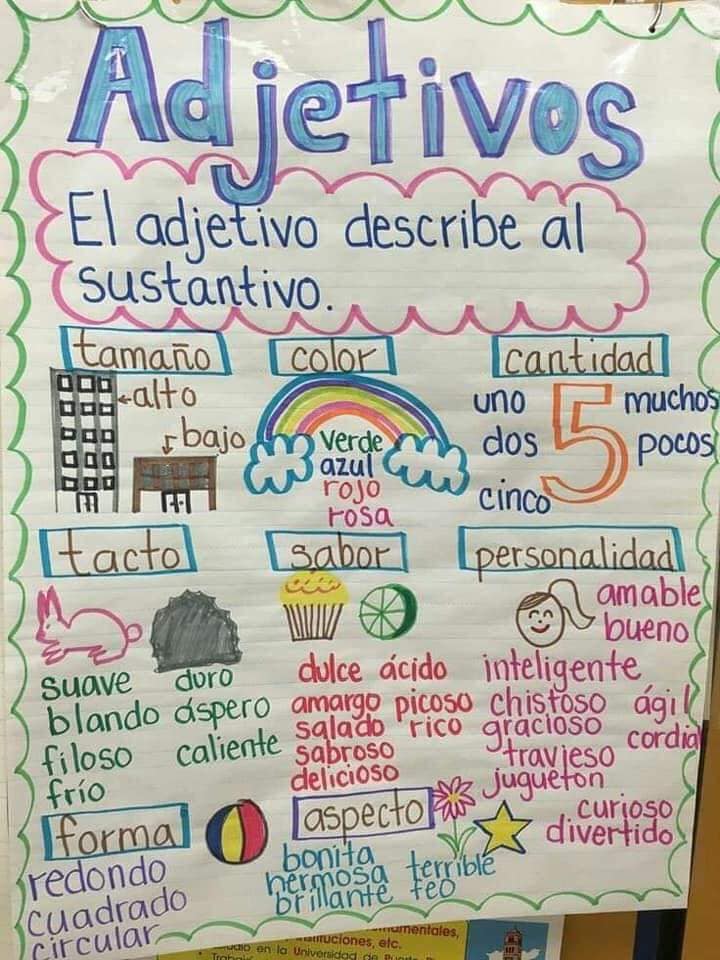 Adjetivos
El adjetivo describe al
sustantivo.
tamaño
alto
bajo
color
verde
azul
rojo
rosa
cantidad
uno
dos
cinco
5
muchos
pocos
tacto
suave duro
blando áspero
filoso caliente
frío
sabor
dulce ácido
amargo picoso
salado rico
sabroso
delicioso
personalidad
amable
bueno
inteligente
chistoso ágil
gracioso cordial
travieso
jugueton
curioso
divertido
forma
redondo
cuadrado
circular
aspecto
bonita
hermosa terrible
brillante feo
umentales,
ituciones, etc.
en la Universidad de